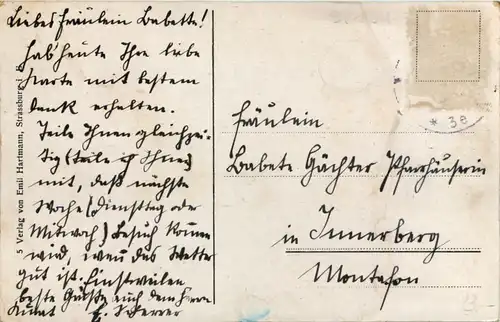 Liebes Fräulein Babette!
hab heute Ihre liebe
Karte mit bestem
Dank erhalten.
Teile Ihnen gleichzei-
tig (teile ich Ihnen)
mit, daß nächste
Woche (Dienstag oder
Mittwoch) Besuch komm
wird, wenn das Wetter
gut ist. Einstweilen
beste Grüße auch dem Herrn
Kurat E. Scherrer
5 Verlag von Emil Hartmann, Strassburg i. E.
* 3a
Fräulein
Babete Gächter Pfarrhäuserin
in Innerberg
Montafon